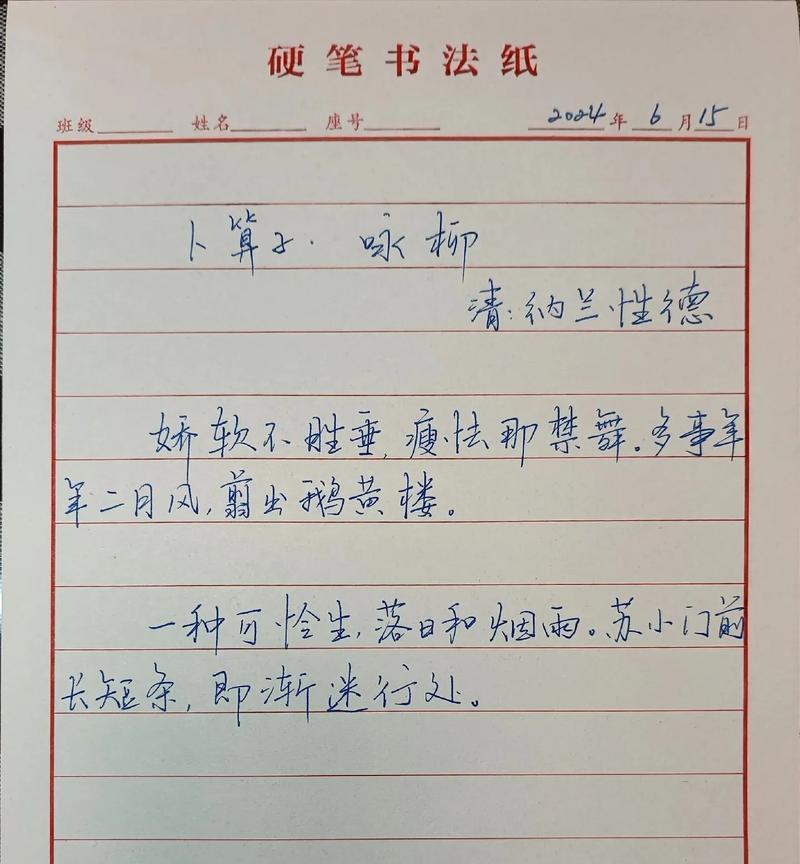 硬笔书法纸
班级 姓名 座号 2024年6月15日
卜算子·咏柳
清:纳兰性德
娇软不胜垂,瘦怯那禁舞。多事年
年二月风,剪出鹅黄楼。
一种可怜生,落日和烟雨。苏小门前
长短条,即渐迷行处。